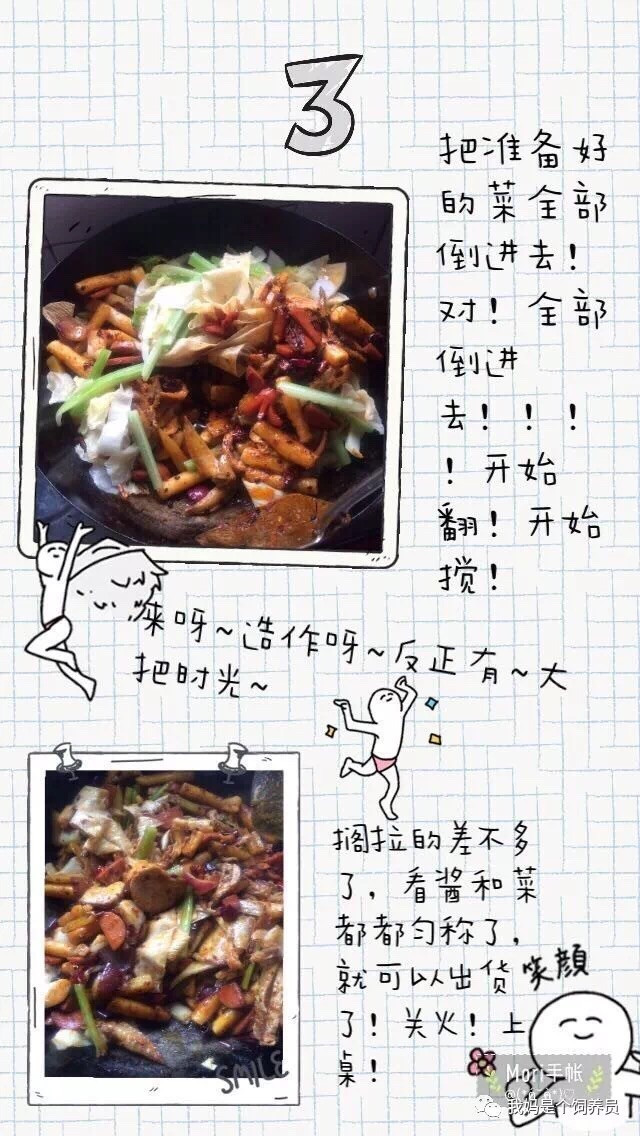 3
把准备好
的菜全部
倒进去！
对！全部
倒进
去！！！
！开始
翻！开始
搅！
来呀~造作呀~反正有~大
把时光~
搁拉的差不多
了，看酱和菜
都都匀称了，
就可以出货
了！关火！上
桌！
笑顔
SMILE
Mori手帐
我妈是个饲养员